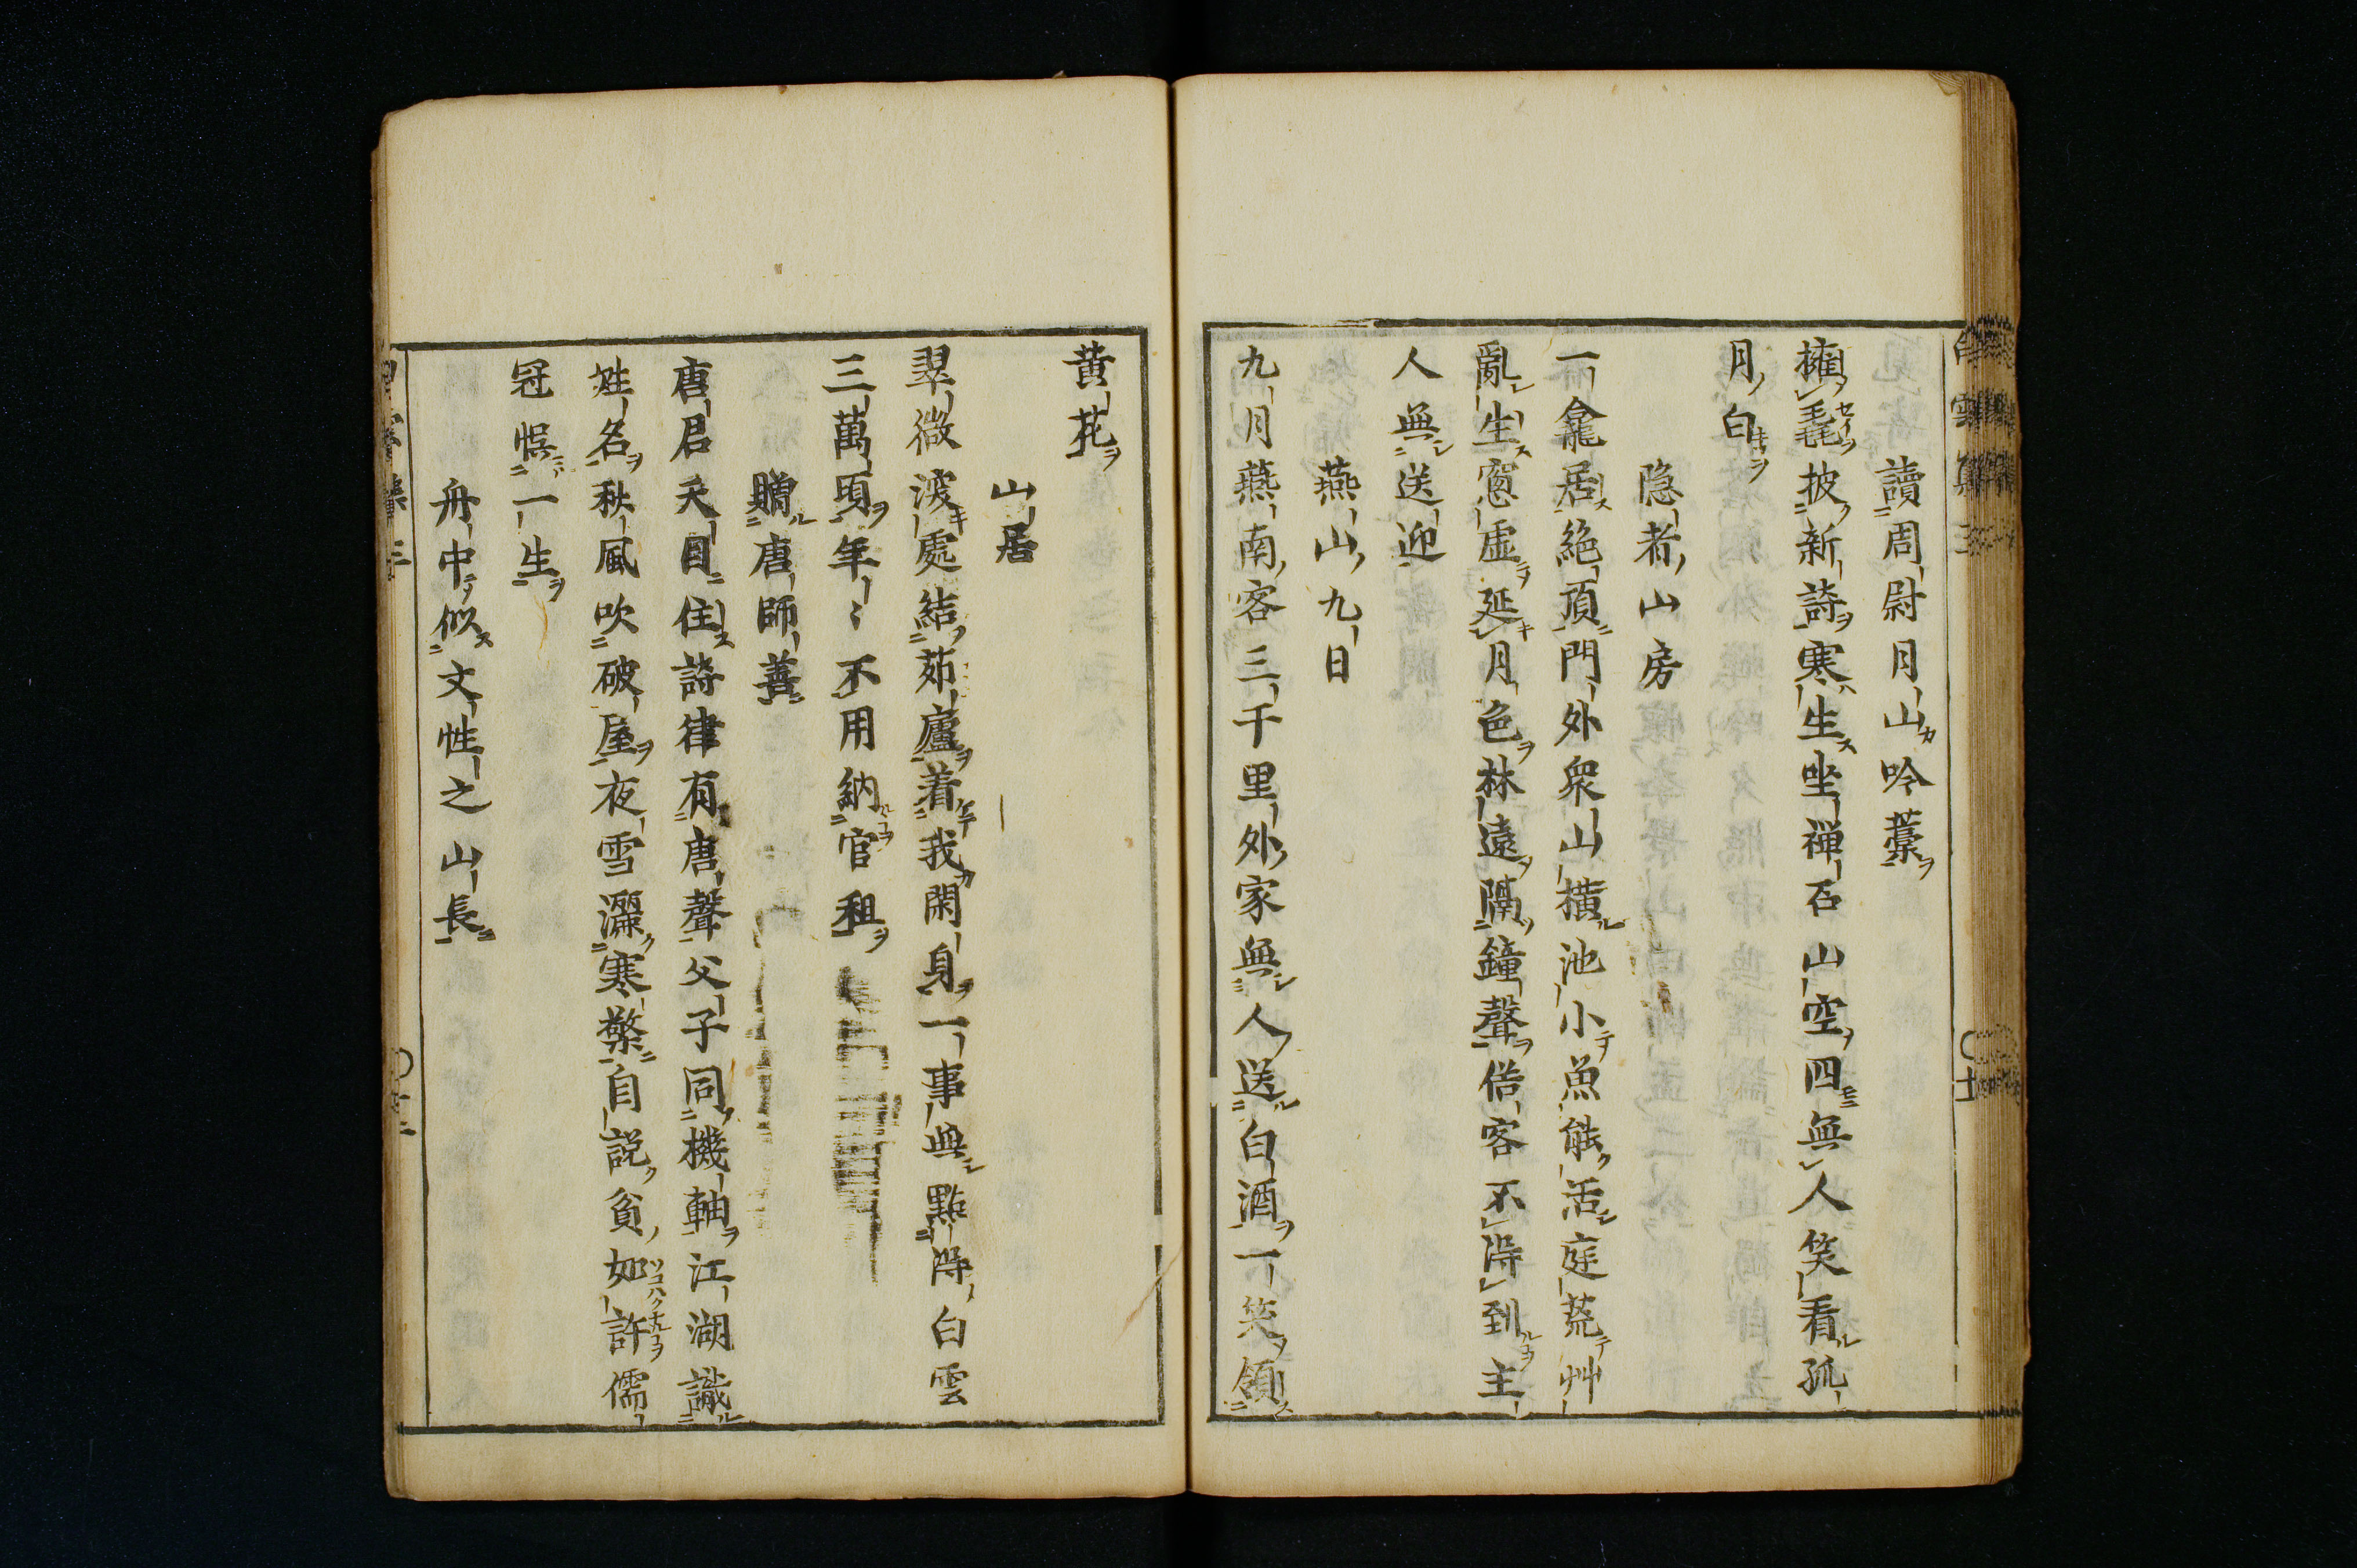 讀周尉月山吟藁
擁毳披新詩寒生坐禅石山空四無人笑看孤
月白
隐者山房
一龕居絶頂門外衆山横池小魚能活庭荒艸
亂生窻虛延月色林遠隔鐘聲借客不得到主
人無送迎
燕山九日
九月燕南客三千里外家無人送白酒一笑領
黄花
山居
翠微深處結茆廬着我閑身一事無點得白雲
三萬頃年〻不用納官租
贈唐師善
唐君天目住詩律有唐聲父子同機軸江湖識
姓名秋風吹破屋夜雪灑寒檠自説貧如許儒
冠悞一生
舟中似文性之山長